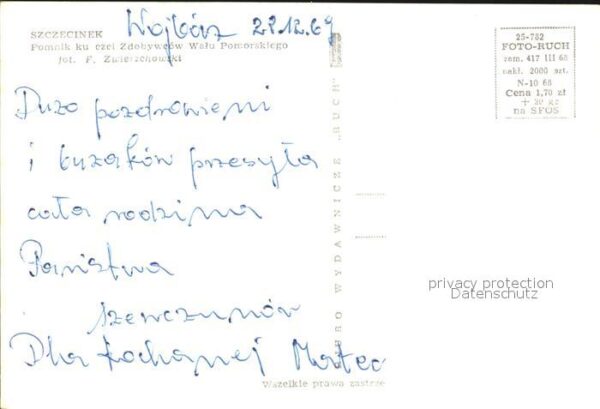 Wojkósz 28.12.69
SZCZECINEK
Pomnik ku czci Zdobywców Wału Pomorskiego
fot. F. Zwierzchowski
25-782
FOTO-RUCH
zam. 417 III 68
nakł. 2000 szt.
N-10 68
Cena 1,70 zł
+ 30 gr
na SFOS
Dużo pozdrowieni
i buzaków przesyła
cała rodzina
Państwa
Szewczunów
Dla kochanej Matec
WYDAWNICZE „RUCH”
privacy protection
Datenschutz
Wszelkie prawa zastrze